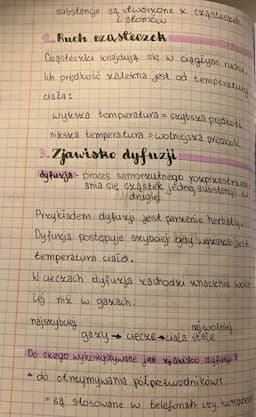 substancje są stworzone z cząsteczek
z atomów
2. Ruch cząsteczek
Cząsteczki znajdują się w ciągłym ruchu.
Ich prędkość zależna jest od temperatury
ciała:
wyższa temperatura = szybsza prędkość
niższa temperatura = wolniejsza prędkość
3. Zjawisko dyfuzji
dyfuzja - proces samorzutnego rozprzestrzeni
ania się cząstek jednej substancji w
drugiej
Przykładem dyfuzji jest parzenie herbaty.
Dyfuzja postępuje szybciej gdy wyższa jest
temperatura ciała.
W cieczach dyfuzja zachodzi znacznie wolni
ej niż w gazach.
najszybciej najwolniej
gazy → ciecze → ciała stałe
Do czego wykorzystywane jest zjawisko dyfuzji?
• do otrzymywania półprzewodników:
* są stosowane w telefonach czy